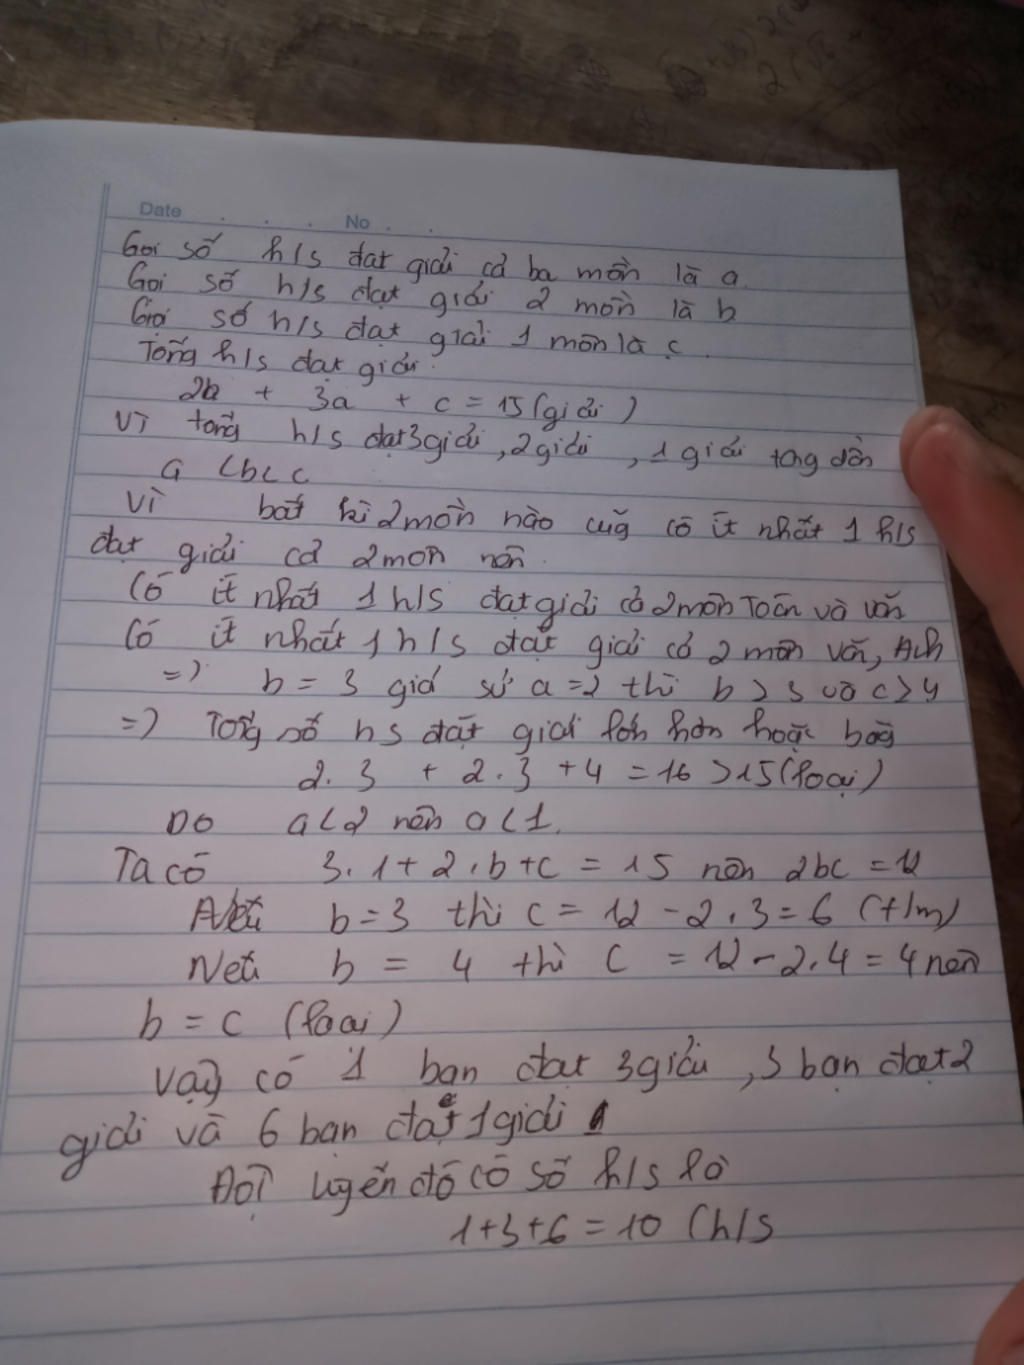 Date . . . No . .
Gọi số h/s đạt giải cả ba môn là a
Gọi số h/s đạt giải 2 môn là b
Gọi số h/s đạt giải 1 môn là c.
Tổng h/s đạt giải.
2b + 3a + c = 15 (giải)
Vì tổng h/s đạt 3 giải, 2 giải, 1 giải tăng dần
a < b < c
Vì bất kì 2 môn nào cũg có ít nhất 1 h/s
đạt giải cả 2 môn nên.
Có ít nhất 1 h/s đạt giải cả 2 môn Toán và văn
Có ít nhất 1 h/s đạt giải cả 2 môn văn, Anh
=> b = 3 giả sử a = 2 thì b > 3 và c > 4
=> Tổng số hs đạt giải lớn hơn hoặc bằg
2.3 + 2.3 + 4 = 16 > 15 (loại)
Do a < 2 nên a < 1.
Ta có 3.1 + 2.b + c = 15 nên 2bc = 12
Nếu b = 3 thì c = 12 - 2.3 = 6 (t/m)
Nếu b = 4 thì c = 12 - 2.4 = 4 nên
b = c (loại)
Vậy có 1 bạn đạt 3 giải, 3 bạn đạt 2
giải và 6 bạn đạt 1 giải
Đội tuyển đó có số h/s là
1 + 3 + 6 = 10 (h/s